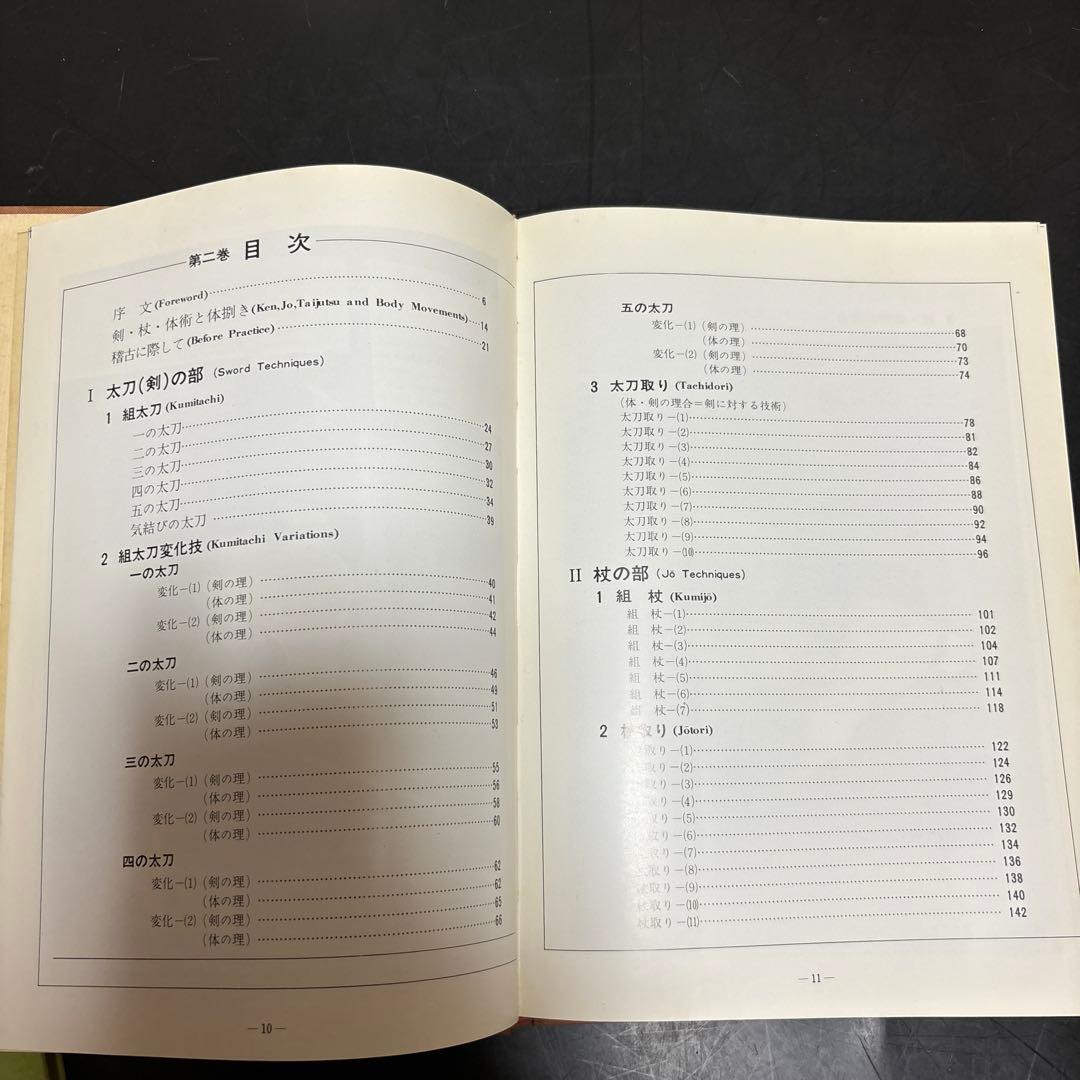 第二巻 目 次
序 文 (Foreword)……6
剣・杖・体術と体捌き (Ken,Jo,Taijutsu and Body Movements)……14
稽古に際して (Before Practice)……21
I 太刀(剣)の部 (Sword Techniques)
1 組太刀 (Kumitachi)
一の太刀……24
二の太刀……27
三の太刀……30
四の太刀……32
五の太刀……34
気結びの太刀……39
2 組太刀変化技 (Kumitachi Variations)
一の太刀
変化−(1)(剣の理)……40
(体の理)……41
変化−(2)(剣の理)……42
(体の理)……44
二の太刀
変化−(1)(剣の理)……46
(体の理)……49
変化−(2)(剣の理)……51
(体の理)……53
三の太刀
変化−(1)(剣の理)……55
(体の理)……56
変化−(2)(剣の理)……58
(体の理)……60
四の太刀
変化−(1)(剣の理)……62
(体の理)……62
変化−(2)(剣の理)……65
(体の理)……66
—10—
五の太刀
変化−(1)(剣の理)……68
(体の理)……70
変化−(2)(剣の理)……73
(体の理)……74
3 太刀取り (Tachidori)
(体・剣の理合=剣に対する技術)
太刀取り−(1)……78
太刀取り−(2)……81
太刀取り−(3)……82
太刀取り−(4)……84
太刀取り−(5)……86
太刀取り−(6)……88
太刀取り−(7)……90
太刀取り−(8)……92
太刀取り−(9)……94
太刀取り−(10)……96
II 杖の部 (Jō Techniques)
1 組 杖 (Kumijō)
組 杖−(1)……101
組 杖−(2)……102
組 杖−(3)……104
組 杖−(4)……107
組 杖−(5)……111
組 杖−(6)……114
組 杖−(7)……118
2 杖取り (Jōtori)
杖取り−(1)……122
杖取り−(2)……124
杖取り−(3)……126
杖取り−(4)……129
杖取り−(5)……130
杖取り−(6)……132
杖取り−(7)……134
杖取り−(8)……136
杖取り−(9)……138
杖取り−(10)……140
杖取り−(11)……142
—11—